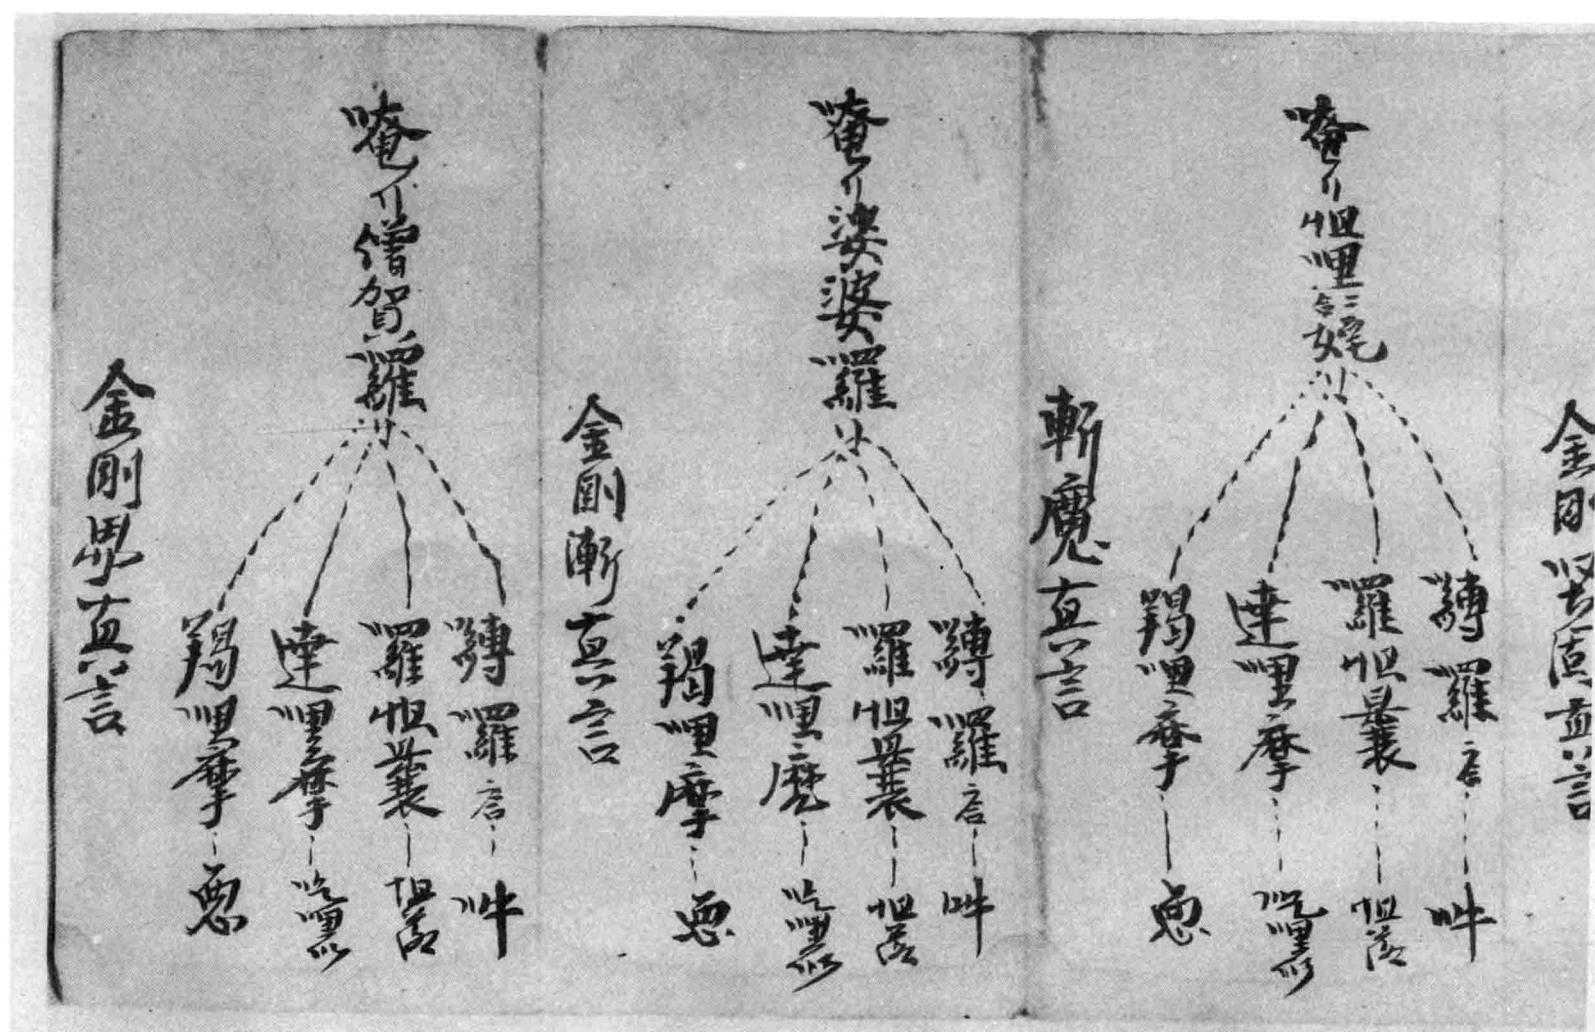 金剛堅固真言
唵怛哩二合姹
嚩囉吽
囉怛曩怛落
達哩摩吃哩
羯哩摩惡
斬魔真言
唵娑婆囉
嚩囉吽
囉怛曩怛落
達哩麽吃哩
羯哩摩惡
金剛漸真言
唵僧賀囉
嚩囉吽
囉怛曩怛落
達哩摩吃哩
羯哩摩惡
金剛界真言